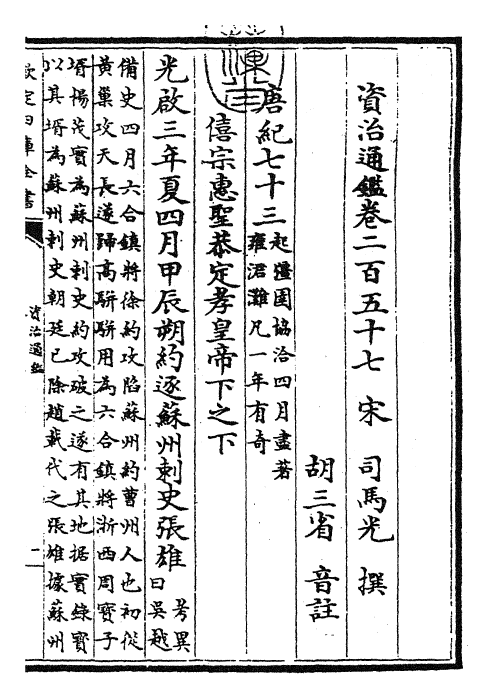 資治通鑑卷二百五十七　宋　司馬光　撰
胡三省　音註
唐紀七十三起彊圉協洽四月盡著
雍涒灘凡一年有奇
僖宗惠聖恭定孝皇帝下之下
光啟三年夏四月甲辰朔約逐蘇州刺史張雄考異
曰吳越
備史四月六合鎮將徐約攻陷蘇州約曹州人也初從
黃巢攻天長遂歸高駢駢用為六合鎮將浙西周寶子
壻楊茂實為蘇州刺史約攻破之遂有其地据實錄寶
以其壻為蘇州刺史朝廷已除趙載代之張雄據蘇州
欽定四庫全書
資治通鑑
一